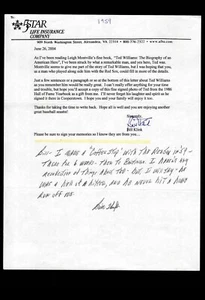 1959
5STAR
LIFE INSURANCE
COMPANY
909 North Washington Street, Alexandria, VA 22314
June 26, 2004
As I've been reading Leigh Montville's fine book, "Ted Williams: The Biography of an
American Hero", I've been struck by what a remarkable man, and you have, Ted was.
Montville seems to give me part of the story of Ted Williams, but I was hoping that you,
as a man who played along with him with the Red Sox, could fill in more of the details.
Just a few sentences or a paragraph or so at the bottom of this letter about Ted Williams
as you remember him would be terrific. I can't really offer anything for your time
and trouble, but hope you'll accept a copy of this fine signed photo of Ted from the 1966
Hall of Fame Yearbook as a gift from me. I'll never forget his laughter and spirit as he
signed it there in Cooperstown. I hope you and your family will enjoy it too.
Thanks for taking the time to write back. Hope all is well and you are enjoying another
great baseball season!
Bill
Please be sure to sign your memories so I know they are from you.
Bill - I made a "Coffee Stop" with The Red Sox in 59
There for 6 weeks - Then to Baltimore. I
recollection of Ted - But I will say - He
was a hell of a hitter, and he would hit a home
run off me.